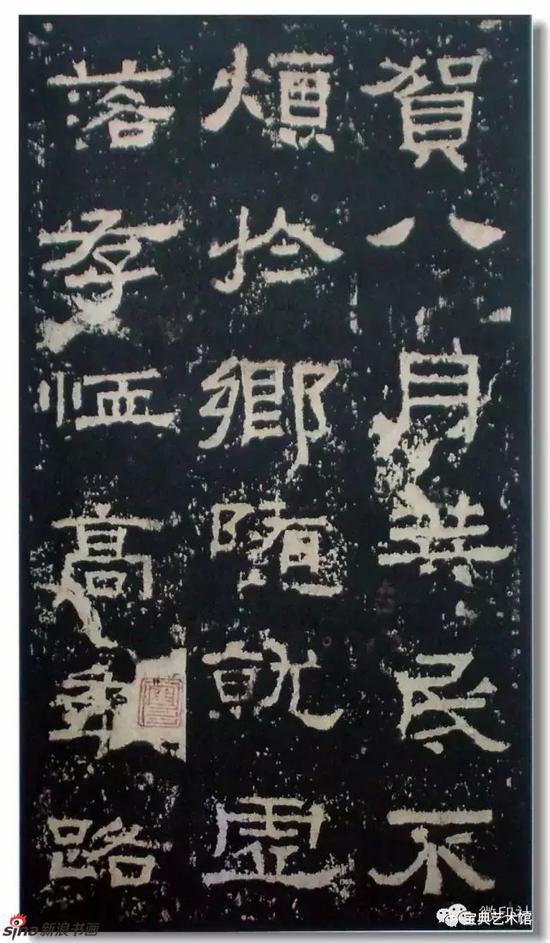 賀八月筭民不
煩於鄉隨就虛
落存恤高年路
sina新浪书画
宝典艺术馆